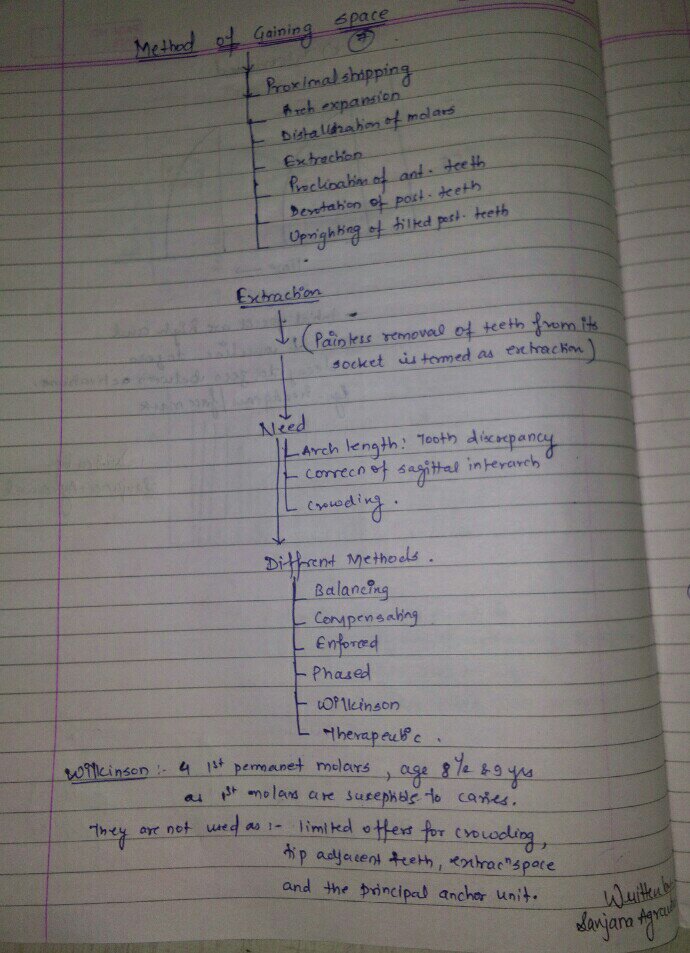 Method of Gaining space
7
Proximal stripping
Arch expansion
Distalization of molars
Extraction
Proclination of ant. teeth
Derotation of post. teeth
Uprighting of tilted post. teeth
Extraction
(Painless removal of teeth from its
socket is termed as extraction)
Need
Arch length: Tooth discrepancy
correcn of sagittal interarch
crowding.
Diffrent Methods.
Balancing
Compensating
Enforced
Phased
Wilkinson
Therapeutic.
Wilkinson :- 4 1st permanet molars, age 8½ & 9 yrs
as 1st molars are suseptible to caries.
They are not used as :- limited offers for crowding,
tip adjacent teeth, extracn space
and the principal anchor unit.
Written by
Sanjana